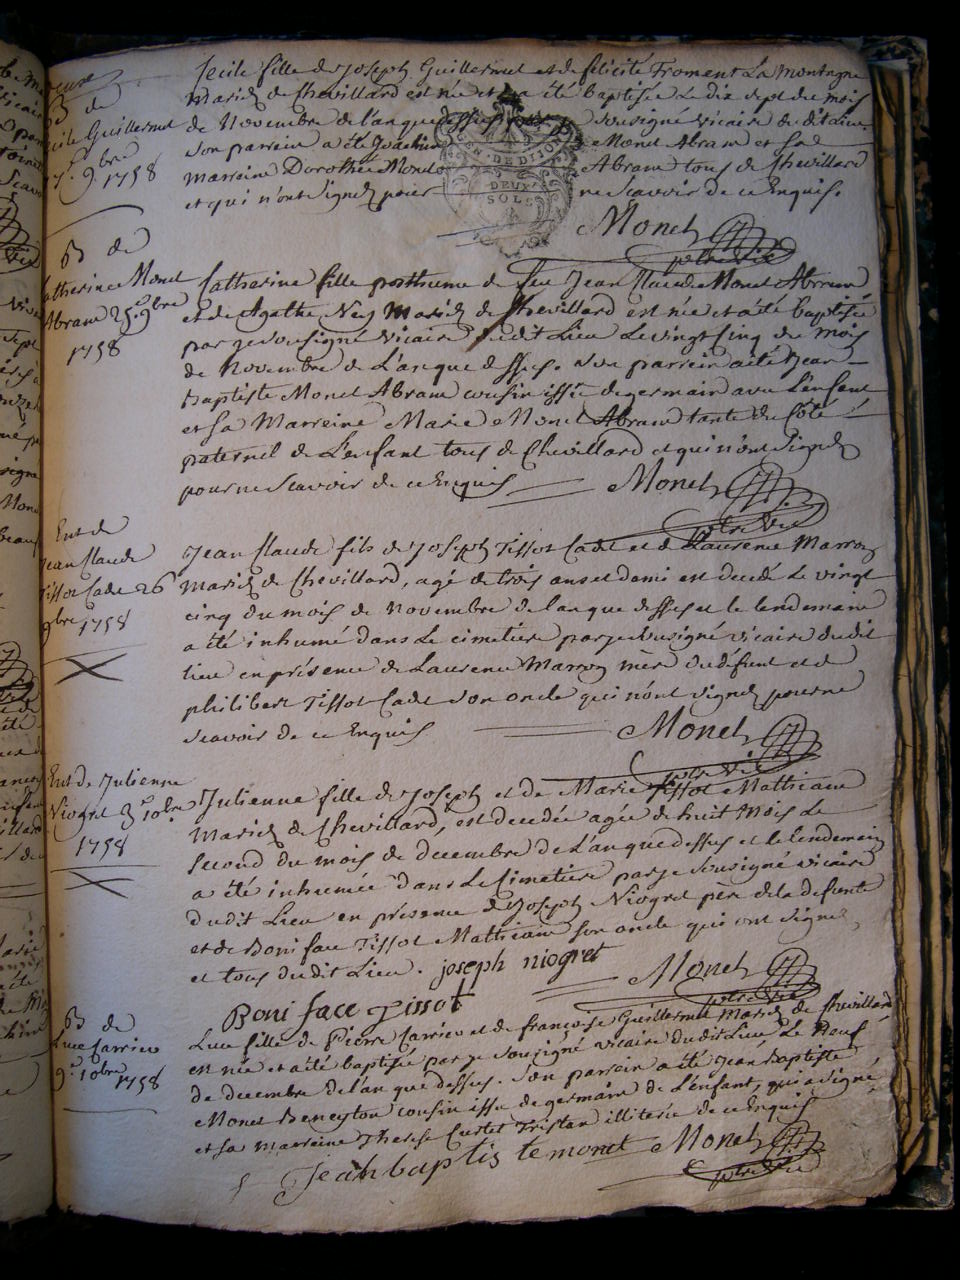 B de
Cecile Guillermet
17.e 9.bre 1758
Cecile fille de Joseph Guillermet et de felicité Froment La Montagne
Mariés de Chevillard est née et a été Baptisée Le dix sept du mois
de Novembre de l'an que dessus sousigné vicaire dudit lieu
son parrain a été Joachim Monet Abram et sa
marreine Dorothée Monet Abram tous de Chevillard
et qui n'ont signés pour ne scavoir de ce Enquis.
GEN. DE DIJON
DEUX
SOLS
Monet
ptre vic
B de
Catherine Monet
Abram 25.e 9bre
1758
Catherine fille posthume de feu Jean Claude Monet Abram
et de Agathe Ney Mariés de Chevillard est née et a été baptisée
par je sousigné vicaire dudit Lieu Le vingt cinq du mois
de Novembre de L'an que dessus. son parrein a été Jean
Baptiste Monet Abram cousin issû de germain avec L'enfant
et sa Marreine Marie Monet Abram tante du Côté
paternel de L'enfant tous de Chevillard et qui n'ont signés
pour ne scavoir de ce Enquis Monet
ptre vic
Ent de
Jean Claude
Tissot Cadet 26
9bre 1758
Jean Claude fils de Joseph Tissot Cadet et de Laurence Marroz
Mariés de Chevillard, agé de trois ans et demi est decedé Le vingt
cinq du mois de Novembre de lan que dessus et le lendemain
a été inhumé dans Le cimetiere par je sousigné vicaire dudit
lieu en présence de Laurence Marroz mère du défunt et de
philibert Tissot Cadet son oncle qui n'ont signés pour ne
scavoir de ce Enquis Monet
ptre vic
Ent de Julienne
Niogret 3.e 10bre
1758
Julienne fille de Joseph et de Marie Tissot Mathieaux
Mariés de Chevillard, est decedée agée de huit Mois Le
second du mois de decembre de L'an que dessus et le lendemain
a été inhumée dans Le Cimetiere par je sousigné vicaire
dudit Lieu en présence de Joseph Niogret père de la defunte
et de Boniface Tissot son oncle qui ont signés
et tous dudit Lieu. joseph niogret Monet
ptre vic
Boni face Tissot
B de
Luce Carrier
9.e 10bre 1758
Luce fille de Pierre Carrier et de françoise Guillermet Mariés de Chevillard
est née et a été baptisée par je sousigné vicaire dudit Lieu Le Neuf
de decembre de l'an que dessus. son parrain a été Jean Baptiste
Monet Beneyton cousin issu de germain de L'enfant, qui a signé
et sa marreine Therese Curtet Tristan illiterée de ce Enquis
Jean baptis te monet Monet
ptre vic